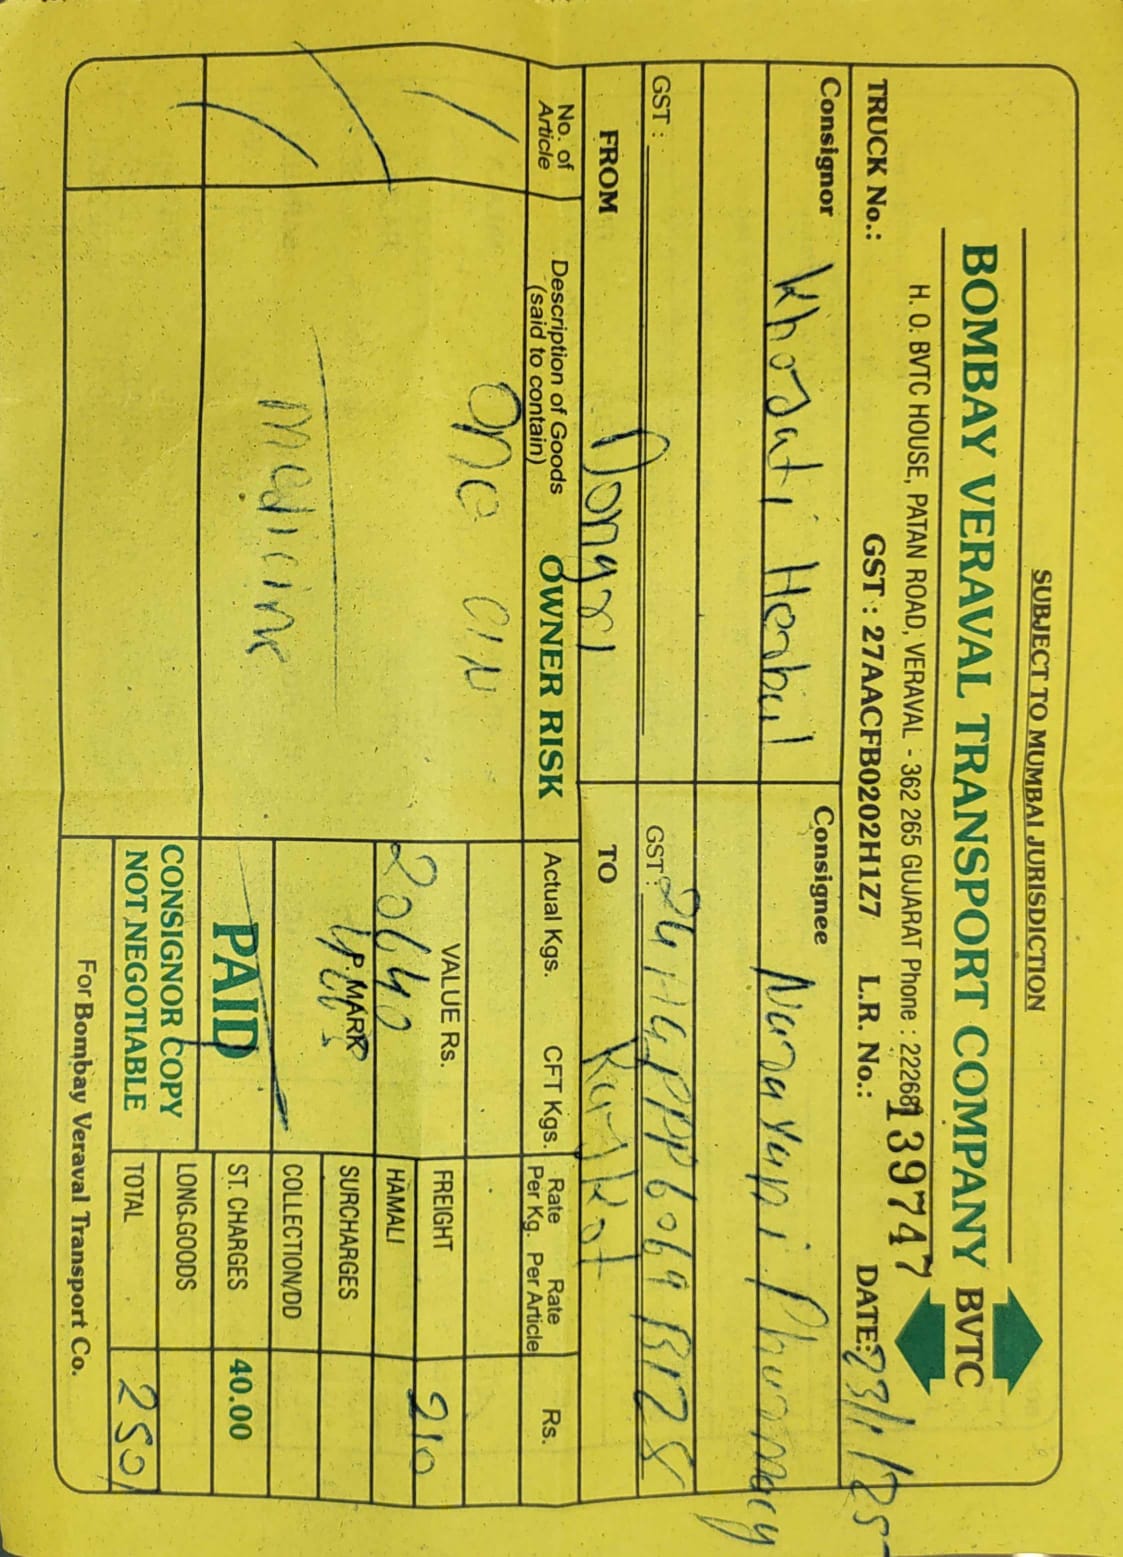 SUBJECT TO MUMBAI JURISDICTION
BOMBAY VERAVAL TRANSPORT COMPANY BVTC
H. O. BVTC HOUSE, PATAN ROAD, VERAVAL - 362 265 GUJARAT Phone : 22268
139747
TRUCK No.: GST : 27AACFB0202H1Z7 L.R. No.: DATE: 23/1/25
Consignor Khojati Herbal
Consignee Narayani Pharmacy
GST :
GST :
FROM Dongri
TO Rajkot
No. of Article
Description of Goods (said to contain)
OWNER RISK
Actual Kgs.
CFT Kgs.
Rate Per Kg.
Rate Per Article
Rs.
One
medicine
VALUE Rs.
20640
P. MARK
PAID
CONSIGNOR COPY
NOT NEGOTIABLE
FREIGHT 210
HAMALI
SURCHARGES
COLLECTION/DD
ST. CHARGES 40.00
LONG.GOODS
TOTAL 250/
For Bombay Veraval Transport Co.